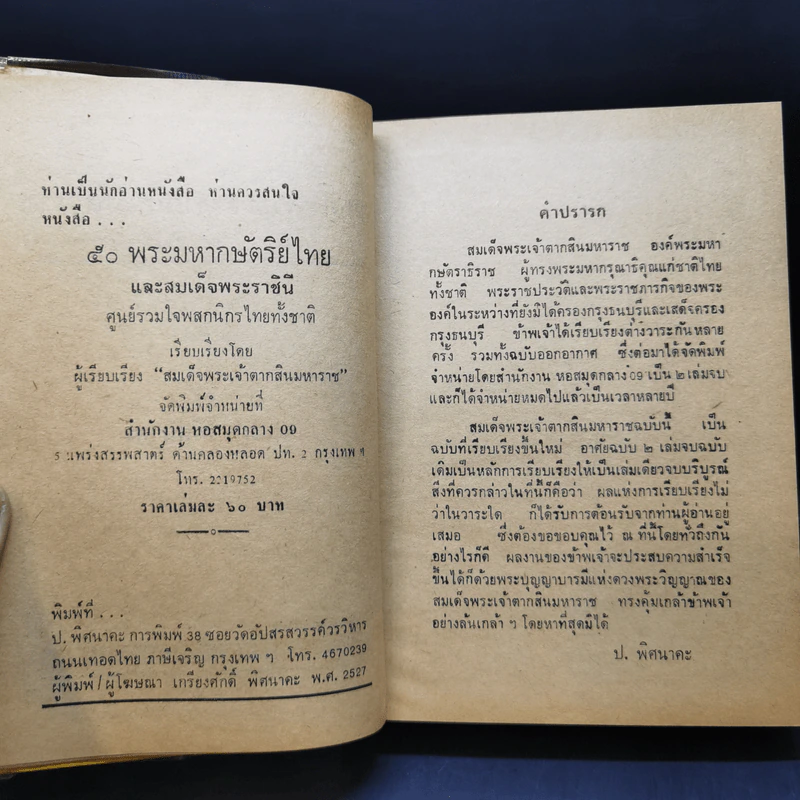 ท่านเป็นนักอ่านหนังสือ ท่านควรสนใจ
หนังสือ . . .
๕๐ พระมหากษัตริย์ไทย
และสมเด็จพระราชินี
ศูนย์รวมใจพสกนิกรไทยทั้งชาติ
เรียบเรียงโดย
ผู้เรียบเรียง “สมเด็จพระเจ้าตากสินมหาราช”
จัดพิมพ์จำหน่ายที่
สำนักงาน หอสมุดกลาง 09
5 แพร่งสรรพสาตร์ ด้านคลองหลอด ปท. 2 กรุงเทพ ฯ
โทร. 2219752
ราคาเล่มละ ๖๐ บาท
พิมพ์ที่ . . .
ป. พิศนาคะ การพิมพ์ 38 ซอยวัดอัปสรสวรรค์วรวิหาร
ถนนเทอดไทย ภาษีเจริญ กรุงเทพ ฯ โทร. 4670239
ผู้พิมพ์/ผู้โฆษณา เกรียงศักดิ์ พิศนาคะ พ.ศ. 2527
คำปรารภ
สมเด็จพระเจ้าตากสินมหาราช องค์พระมหา
กษัตราธิราช ผู้ทรงพระมหากรุณาธิคุณแก่ชาติไทย
ทั้งชาติ พระราชประวัติและพระราชภารกิจของพระ
องค์ในระหว่างที่ยังมิได้ครองกรุงธนบุรีและเสด็จครอง
กรุงธนบุรี ข้าพเจ้าได้เรียบเรียงต่างวาระกันหลาย
ครั้ง รวมทั้งฉบับออกอากาศ ซึ่งต่อมาได้จัดพิมพ์
จำหน่ายโดยสำนักงาน หอสมุดกลาง 09 เป็น ๒ เล่มจบ
และก็ได้จำหน่ายหมดไปแล้วเป็นเวลาหลายปี
สมเด็จพระเจ้าตากสินมหาราชฉบับนี้ เป็น
ฉบับที่เรียบเรียงขึ้นใหม่ อาศัยฉบับ ๒ เล่มจบฉบับ
เดิมเป็นหลักการเรียบเรียงให้เป็นเล่มเดียวจบบริบูรณ์
สิ่งที่ควรกล่าวในที่นี้ก็คือว่า ผลแห่งการเรียบเรียงไม่
ว่าในวาระใด ก็ได้รับการต้อนรับจากท่านผู้อ่านอยู่
เสมอ ซึ่งต้องขอขอบคุณไว้ ณ ที่นี้โดยทั่วถึงกัน
อย่างไรก็ดี ผลงานของข้าพเจ้าจะประสบความสำเร็จ
ขึ้นได้ก็ด้วยพระบุญญาบารมีแห่งดวงพระวิญญาณของ
สมเด็จพระเจ้าตากสินมหาราช ทรงคุ้มเกล้าข้าพเจ้า
อย่างล้นเกล้า ๆ โดยหาที่สุดมิได้
ป. พิศนาคะ